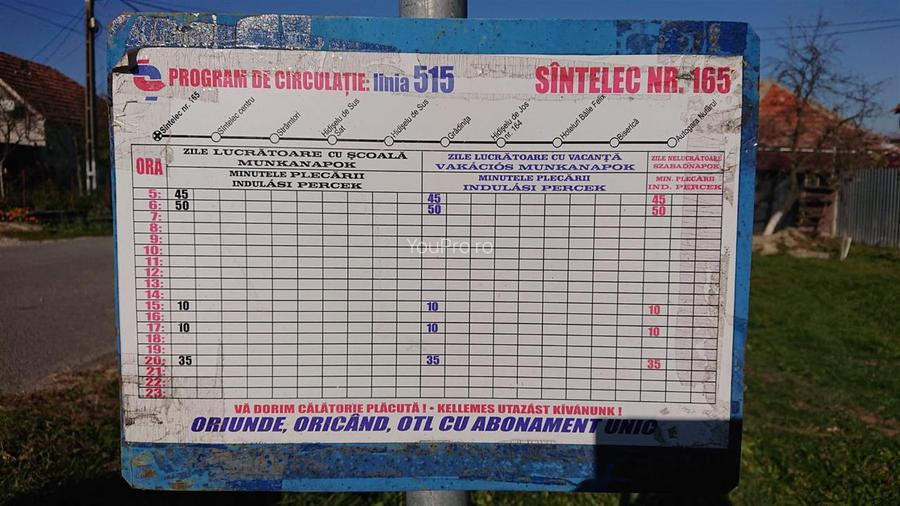 PROGRAM DE CIRCULAȚIE: linia 515 SÎNTELEC NR. 165
Sîntelec nr. 165
Sîntelec centru
Strâmtori
Hidișelu de Sus Sat
Hidișelu de Sus
Grădinița
Hidișelu de Jos nr. 164
Hoteluri Băile Felix
Biserică
Autogara Nufărul
ORA
ZILE LUCRĂTOARE CU ȘCOALĂ
MUNKANAPOK
MINUTELE PLECĂRII
INDULÁSI PERCEK
ZILE LUCRĂTOARE CU VACANȚĂ
VAKÁCIÓS MUNKANAPOK
MINUTELE PLECĂRII
INDULÁSI PERCEK
ZILE NELUCRĂTOARE
SZABADNAPOK
MIN. PLECĂRII
IND. PERCEK
5: 45 45 45
6: 50 50 50
7:
8:
9:
10:
11:
12:
13:
14:
15: 10 10 10
16:
17: 10 10 10
18:
19:
20: 35 35 35
21:
22:
23:
YouPro.ro
VĂ DORIM CĂLĂTORIE PLĂCUTĂ ! - KELLEMES UTAZÁST KÍVÁNUNK !
ORIUNDE, ORICÂND, OTL CU ABONAMENT UNIC